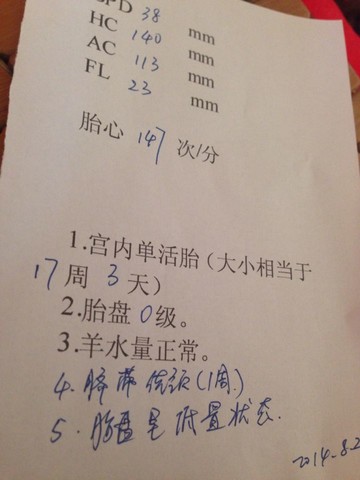 BPD 38 mm
HC 140 mm
AC 113 mm
FL 23 mm
胎心 147 次/分
1.宫内单活胎（大小相当于
17周 3天）
2.胎盘 0级。
3.羊水量正常。
4. 脐带绕颈（1周.）
5. 胎盘呈附置状态.
2014-8-2